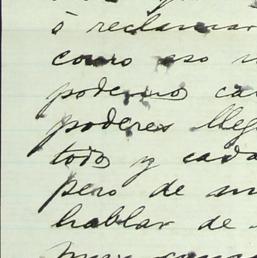 ó reclamar
como eso
podemos
poderes lleg
todo y cada
pero de
hablar de